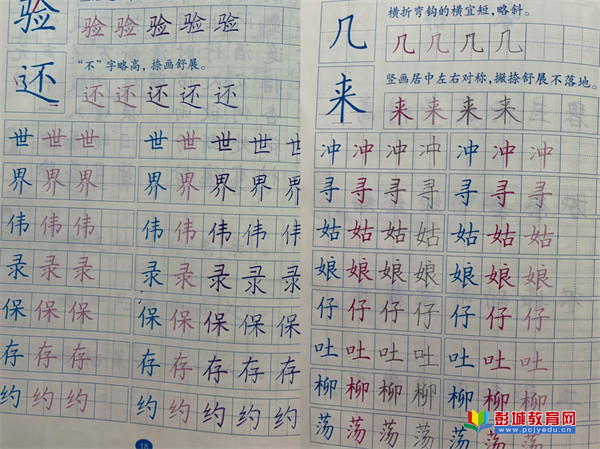 验 验 验 验 验 验
“不”字略高，捺画舒展。
还 还 还 还 还 还
世 世 世 世 世 世 世 世
界 界 界 界 界 界 界 界
伟 伟 伟 伟 伟 伟 伟 伟
录 录 录 录 录 录 录 录
保 保 保 保 保 保 保 保
存 存 存 存 存 存 存 存
约 约 约 约 约 约 约 约
18
横折弯钩的横宜短，略斜。
几 几 几 几 几
竖画居中左右对称，撇捺舒展不落地。
来 来 来 来 来
冲 冲 冲 冲 冲 冲 冲
寻 寻 寻 寻 寻 寻 寻
姑 姑 姑 姑 姑 姑 姑
娘 娘 娘 娘 娘 娘 娘
仔 仔 仔 仔 仔 仔 仔
吐 吐 吐 吐 吐 吐 吐
柳 柳 柳 柳 柳 柳 柳
荡 荡 荡 荡 荡 荡 荡
彭城教育网
www.pcjyedu.cn